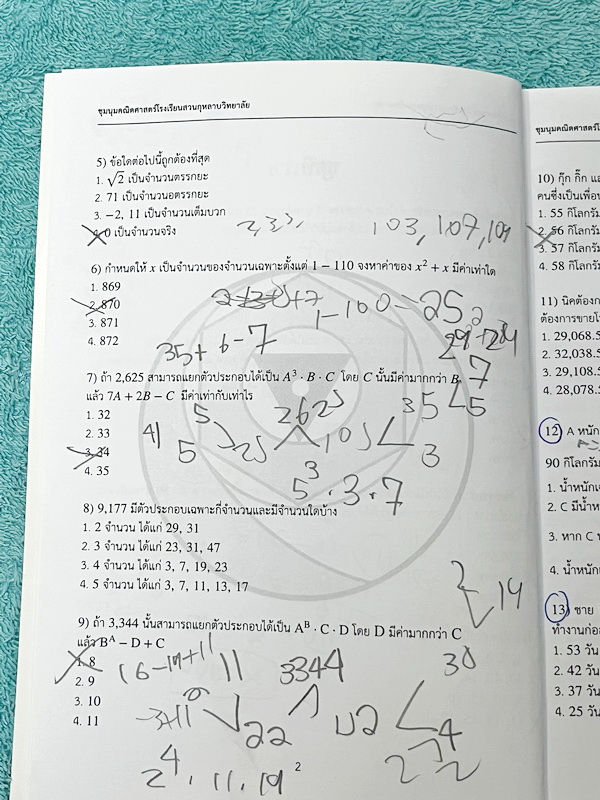 ชุมนุมคณิตศาสตร์โรงเรียนสวนกุหลาบวิทยาลัย
5) ข้อใดต่อไปนี้ถูกต้องที่สุด
1. √2 เป็นจำนวนตรรกยะ
2. 71 เป็นจำนวนอตรรกยะ
3. −2, 11 เป็นจำนวนเต็มบวก
4. 0 เป็นจำนวนจริง
103, 107, 109
6) กำหนดให้ x เป็นจำนวนของจำนวนเฉพาะตั้งแต่ 1 − 110 จงหาค่าของ x² + x มีค่าเท่าใด
1. 869
2. 870
3. 871
4. 872
1-100 = 25
35+6-7
7) ถ้า 2,625 สามารถแยกตัวประกอบได้เป็น A³ · B · C โดย C นั้นมีค่ามากกว่า B
แล้ว 7A + 2B − C มีค่าเท่ากับเท่าไร
1. 32
2. 33
3. 34
4. 35
2625
5 25 105 35 7 5
5 3
5³ · 3 · 7
8) 9,177 มีตัวประกอบเฉพาะกี่จำนวนและมีจำนวนใดบ้าง
1. 2 จำนวน ได้แก่ 29, 31
2. 3 จำนวน ได้แก่ 23, 31, 47
3. 4 จำนวน ได้แก่ 3, 7, 19, 23
4. 5 จำนวน ได้แก่ 3, 7, 11, 13, 17
9) ถ้า 3,344 นั้นสามารถแยกตัวประกอบได้เป็น Aᴮ · C · D โดย D มีค่ามากกว่า C
แล้ว Bᴬ − D + C
1. 8
2. 9
3. 10
4. 11
16-19+11
11 3344
22
2⁴ · 11 · 19
2
ชุมนุมคณิตศาสตร์
10) กุ๊ก กิ๊ก
คนซึ่งเป็นเพื่อน
1. 55 กิโลกรัม
2. 56 กิโลกรัม
3. 57 กิโลกรัม
4. 58 กิโลกรัม
11) นิคต้อง
ต้องการขาย
1. 29,068.5
2. 32,038.5
3. 29,108.5
4. 28,078.5
12) A หนัก
90 กิโลกรัม
1. น้ำหนัก
2. C มีน้ำหนัก
3. หาก C
4. น้ำหนัก
13) ชาย
ทำงานก่อ
1. 53 วัน
2. 42 วัน
3. 37 วัน
4. 25 วัน